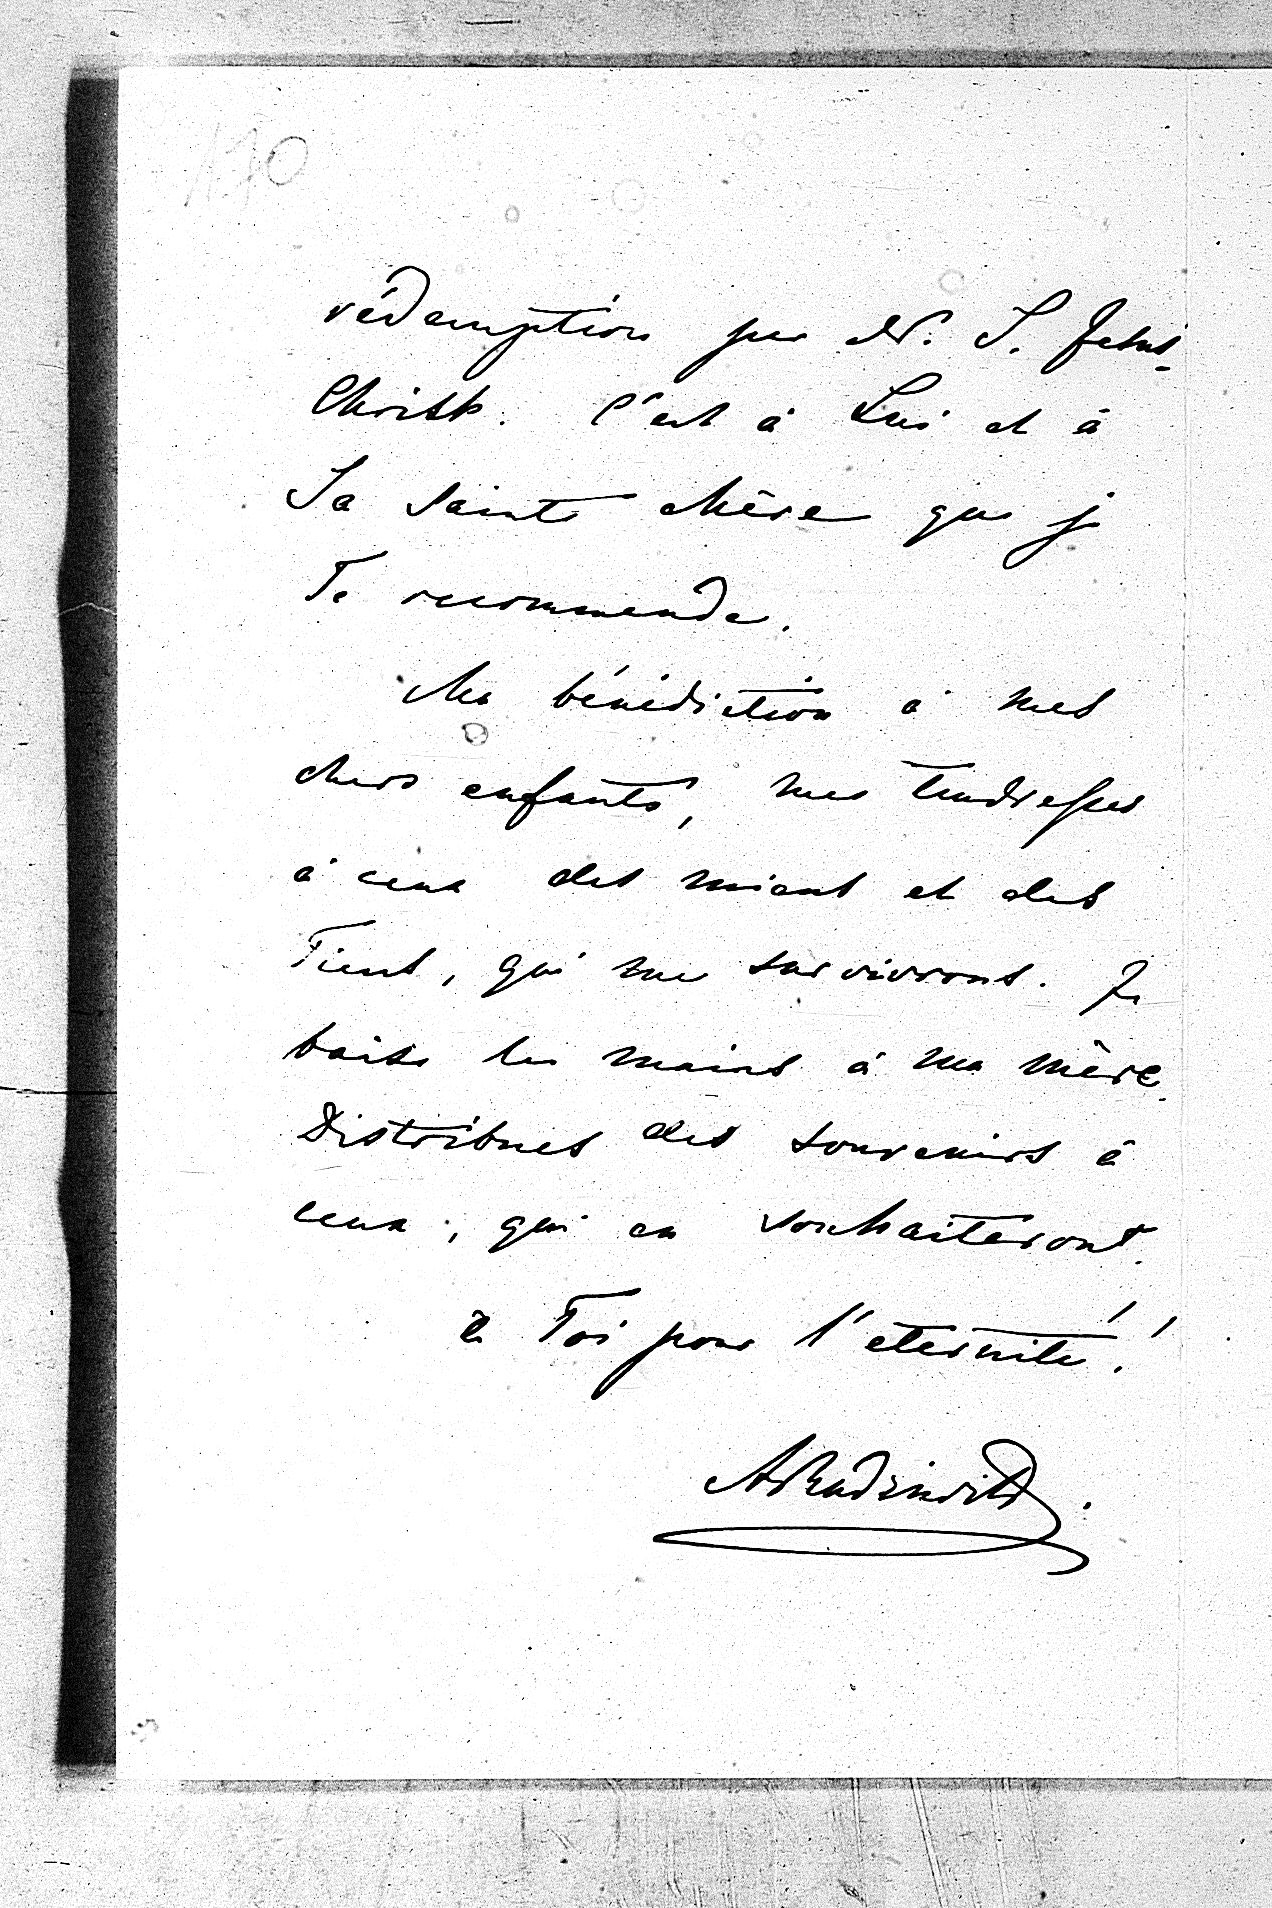 170
rédemption par N. S. Jésus-
Christ. C'est à Lui et à
Sa Sainte Mère que je
Te recommende.
Ma bénédiction à mes
chers enfants, mes tendresses
à ceux des miens et des
Tiens, qui me survivront. Je
baise les mains à ma mère.
Distribues des souvenirs à
ceux, qui en souhaiteront.
à Toi pour l'éternité!
ARadziwill.